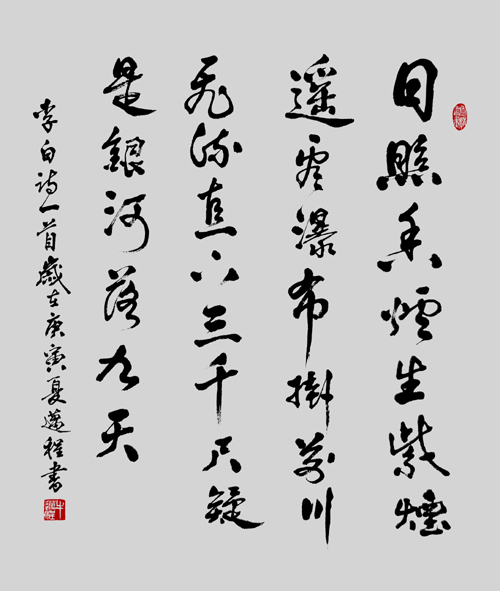 日照香爐生紫煙
遥看瀑布掛前川
飛流直下三千尺疑
是銀河落九天
李白詩一首歲在庚寅夏程書